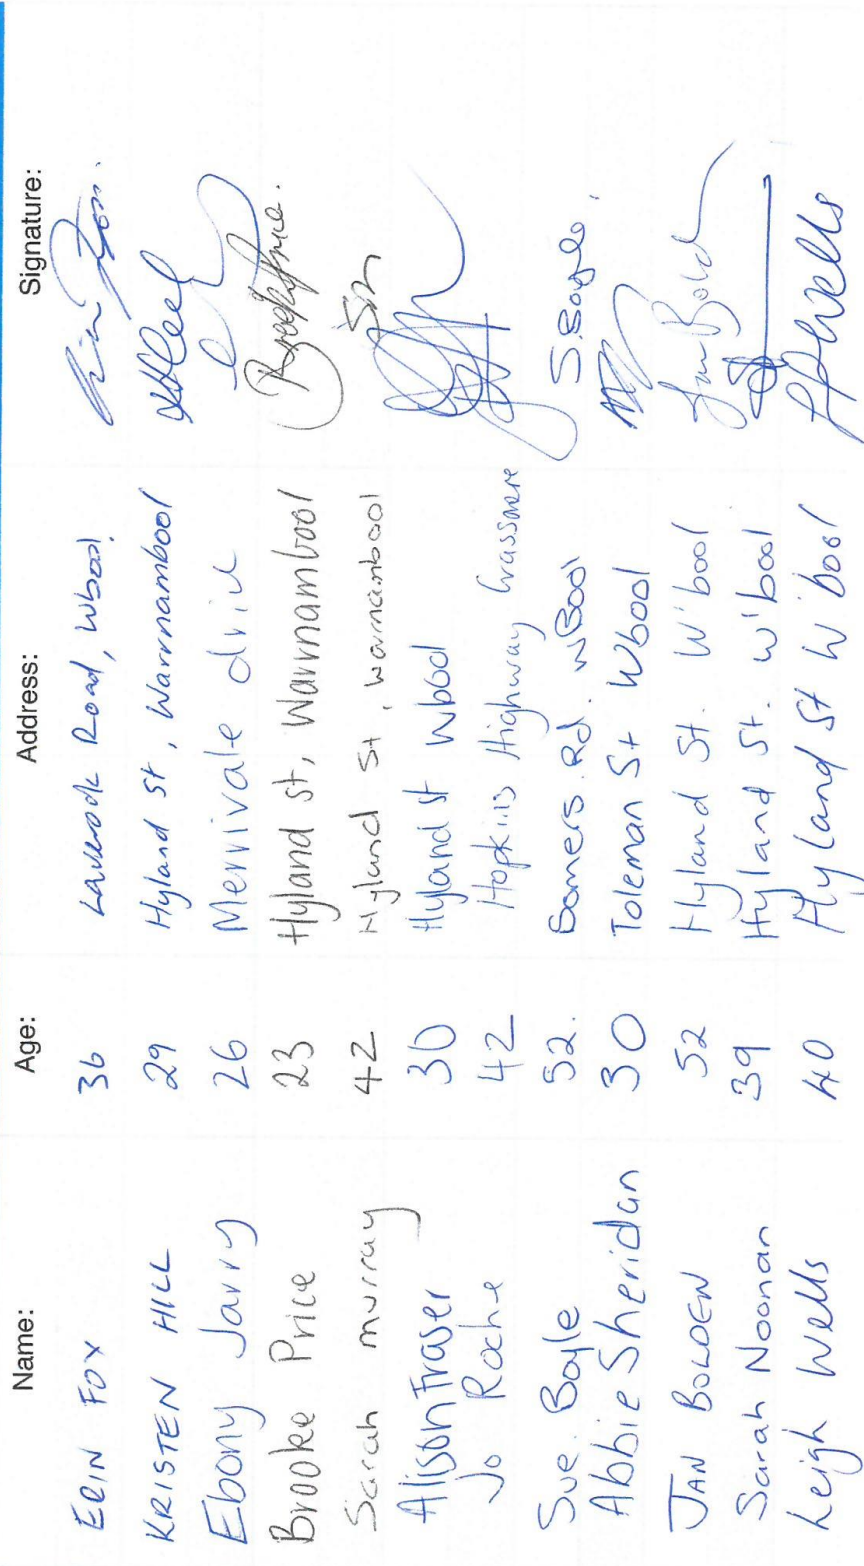 Name: Age: Address: Signature:
ERIN FOX 36 Laverock Road, Wbool.
KRISTEN HILL 29 Hyland St, Warrnambool
Ebony Jarry 26 Merrivale drive
Brooke Price 23 Hyland st, Warrnambool
Sarah murray 42 Hyland St, warrnambool
Alison Fraser 30 Hyland st Wbool
Jo Roche 42 Hopkins Highway Grassmere
Sue Boyle 52. Somers Rd. WBool S.Boyle.
Abbie Sheridan 30 Toleman St Wbool
JAN BOLDEN 52 Hyland St. W'bool
Sarah Noonan 39 Hyland St. W'bool
Leigh Wells 40 Hyland St W'bool